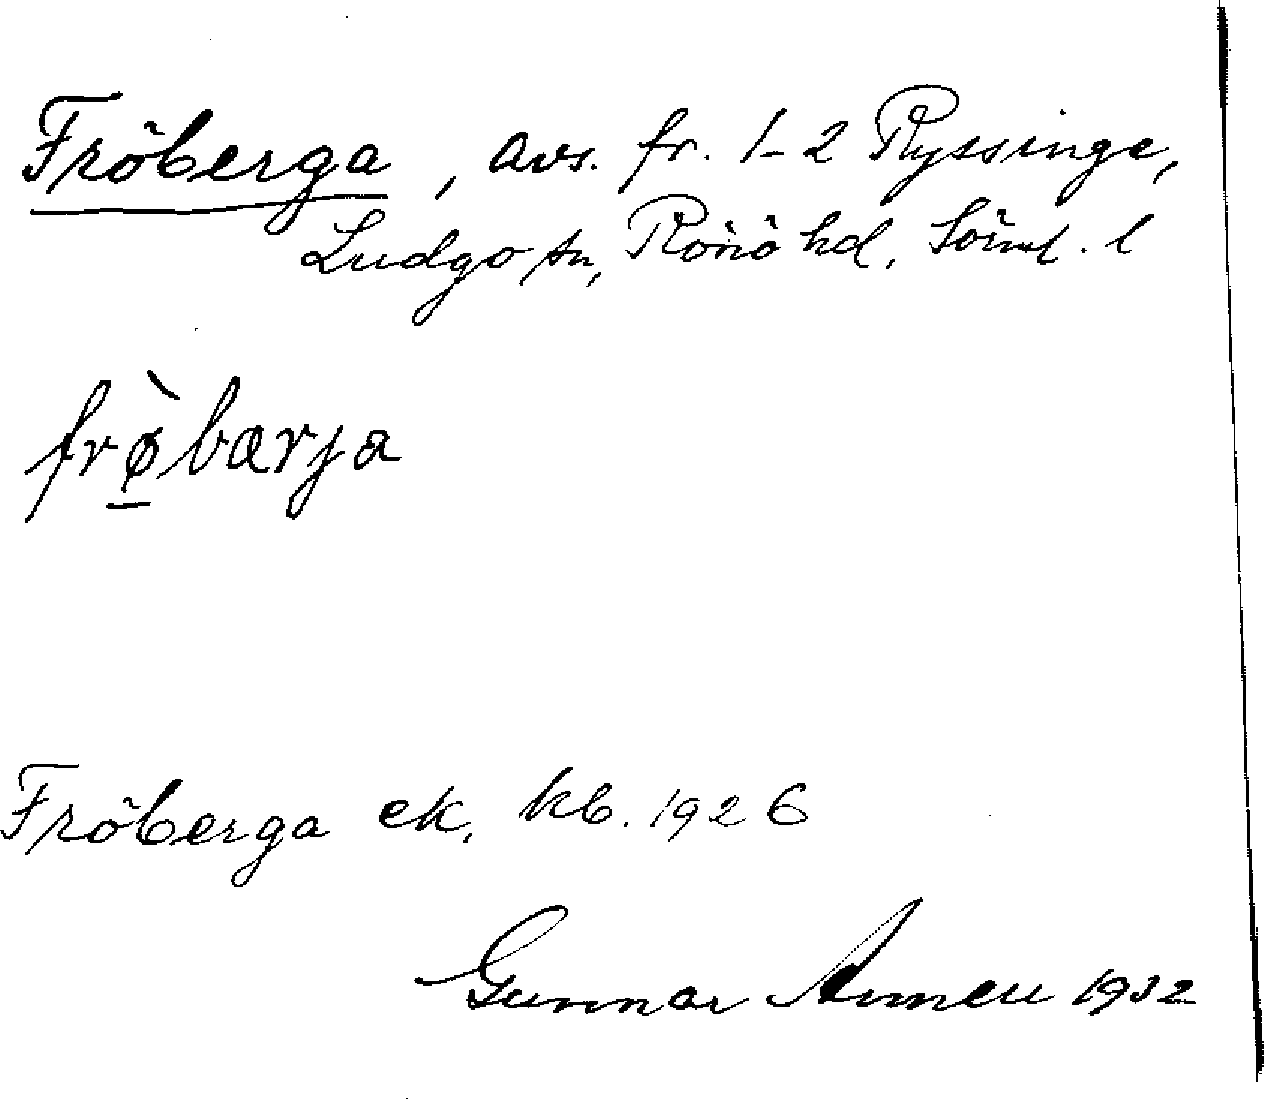 Fröberga, avs. fr. 1-2 Ryssinge,
Ludgo sn, Rönö hd, Söml. l
frø̀bærja
Fröberga ek. kb. 1926
Gunnar 1932